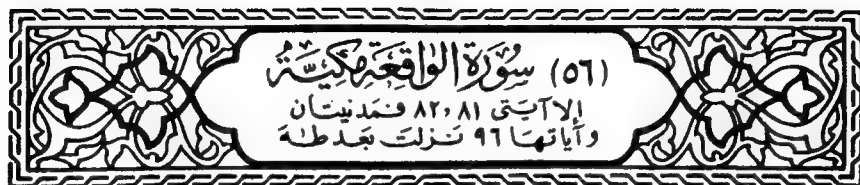 (٥٦) سُورَةُ الوَاقِعَةِ مَكِيَّة
إلا آيتى ٨١ ، ٨٢ فمدنيتان
وآياتها ٩٦ نزلت بعد طه